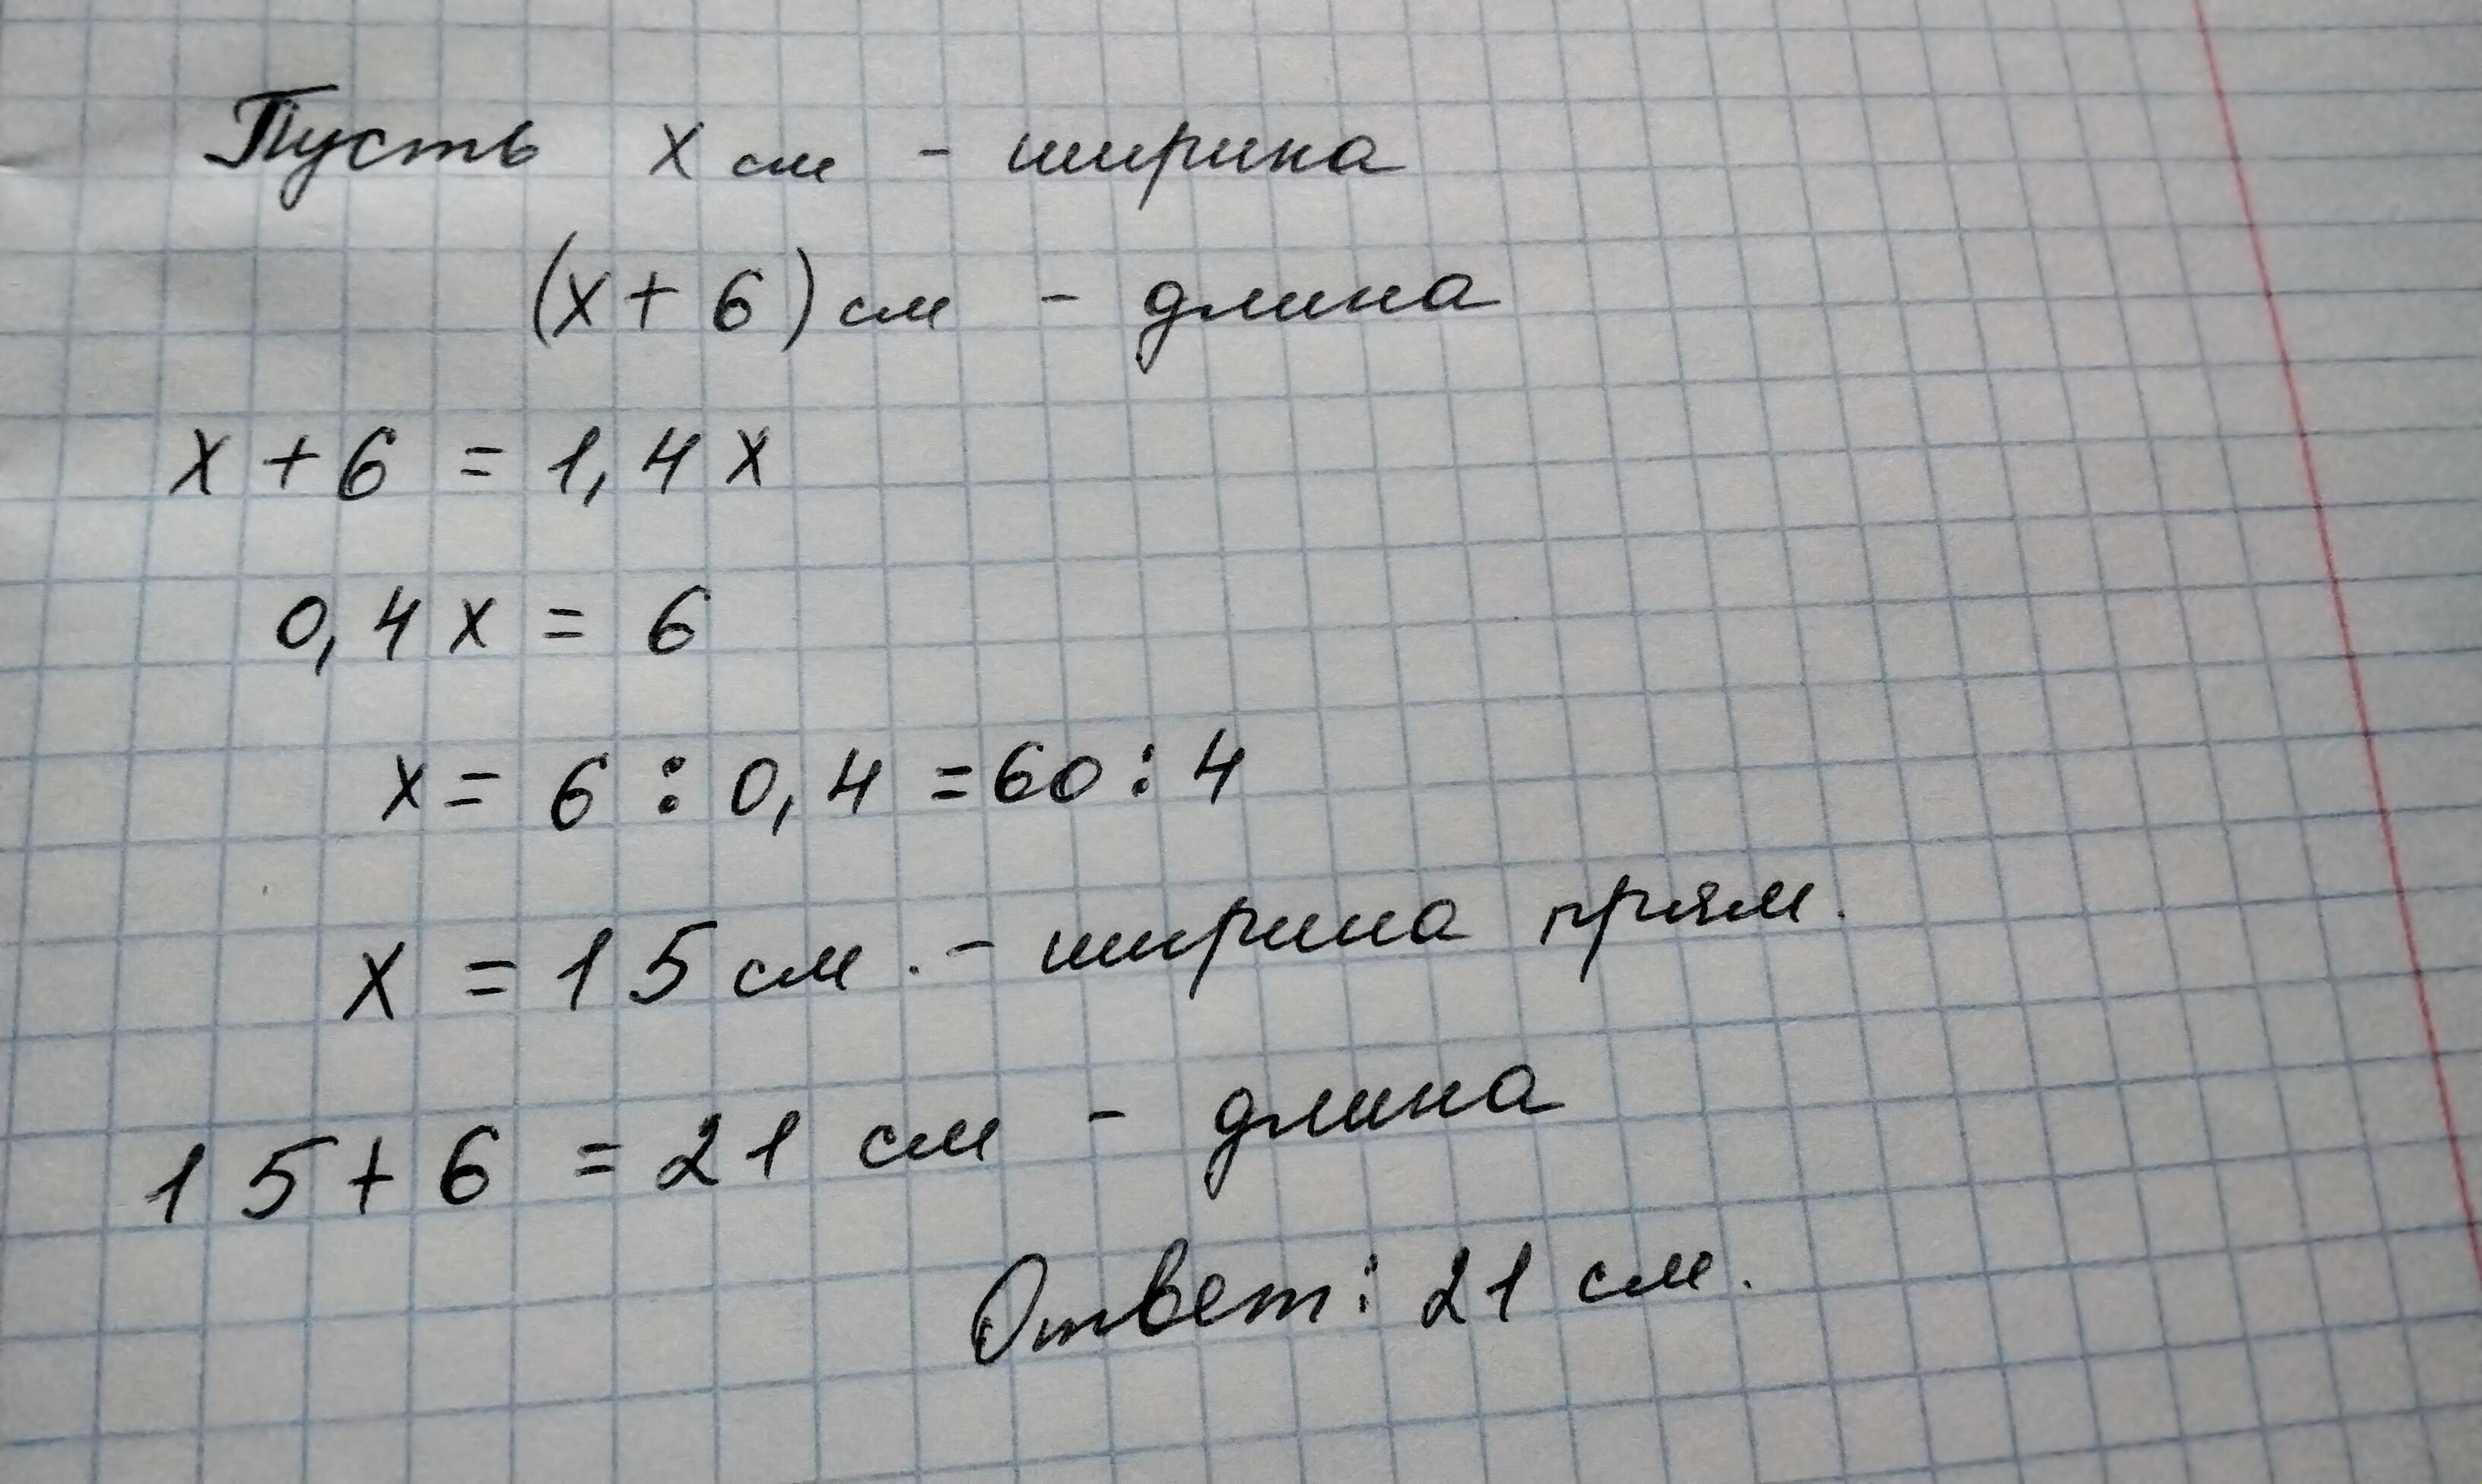 Пусть x см - ширина
(x + 6) см - длина
x + 6 = 1,4 x
0,4 x = 6
x = 6 : 0,4 = 60 : 4
x = 15 см. - ширина прям.
15 + 6 = 21 см - длина
Ответ: 21 см.